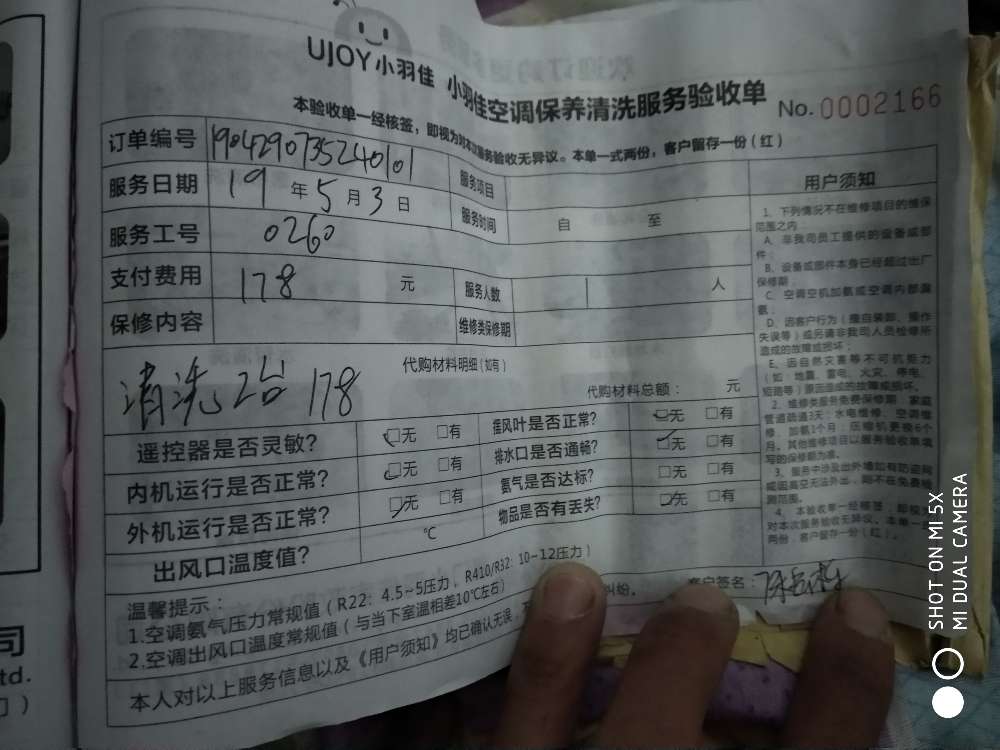 UJOY小羽佳 小羽佳空调保养清洗服务验收单
No.0002166
本验收单一经核签，即视为对本次服务验收无异议。本单一式两份，客户留存一份（红）
订单编号 1904290735240101
服务项目
用户须知
服务日期 19 年 5 月 3 日
服务时间 自 至
服务工号 0260
支付费用 178 元
服务人数 人
保修内容
维修类保修期
代购材料明细(如有)
清洗2台 178
代购材料总额： 元
遥控器是否灵敏? 无 有
摆风叶是否正常? 无 有
内机运行是否正常? 无 有
排水口是否通畅? 无 有
外机运行是否正常? 无 有
氨气是否达标? 无 有
出风口温度值? ℃
物品是否有丢失? 无 有
1、下列情况不在维修项目的维保
范围之内：
A、非我司员工提供的设备或部
件；
B、设备或部件本身已经超过出厂
保修期；
C、空调空机加氨或空调内部漏
氨；
D、因客户行为（擅自装卸、操作
失误等）或另请非我司人员检修所
造成的故障或损坏；
E、因自然灾害等不可抗能力
（如：地震、雷电、火灾、停电、
短路等）原因造成的故障或损坏。
2、维修类服务免费保修期：家庭
管道疏通3天；水电维修、空调维
修、加氨1个月；压缩机更换6个
月。其他维修项目以服务验收单填
写的保修期为准。
3、服务中涉及出外墙如有防盗网
或超高空无法外出，则不在免费检
测范围。
4、本验收单一经核签，即视为
对本次服务验收无异议。本单一式
两份，客户留存一份（红）。
温馨提示：
1.空调氨气压力常规值（R22：4.5~5压力，R410/R32：10~12压力）
2.空调出风口温度常规值（与当下室温相差10℃左右）
本人对以上服务信息以及《用户须知》均已确认无误，
纠纷。
客户签名：
司
td.
SHOT ON MI 5X
MI DUAL CAMERA